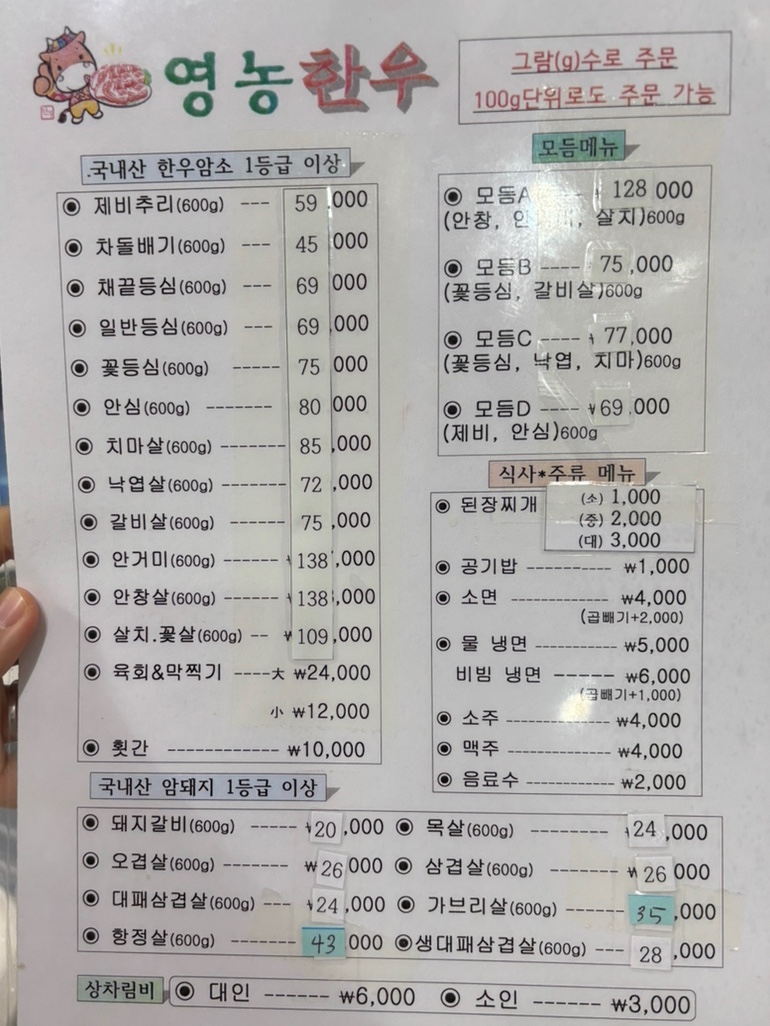 영농한우
그람(g)수로 주문
100g단위로도 주문 가능
.국내산 한우암소 1등급 이상
◉ 제비추리(600g) --- 59,000
◉ 차돌배기(600g) --- 45,000
◉ 채끝등심(600g) --- 69,000
◉ 일반등심(600g) --- 69,000
◉ 꽃등심(600g) ----- 75,000
◉ 안심(600g) ------- 80,000
◉ 치마살(600g) ------- 85,000
◉ 낙엽살(600g) ------- 72,000
◉ 갈비살(600g) ------- 75,000
◉ 안거미(600g) ------- 138,000
◉ 안창살(600g) ------- 138,000
◉ 살치.꽃살(600g) -- ₩109,000
◉ 육회&막찍기 ----大 ₩24,000
小 ₩12,000
◉ 횟간 ------------ ₩10,000
모듬메뉴
◉ 모듬A 128,000
(안창, 살치)600g
◉ 모듬B ---- 75,000
(꽃등심, 갈비살)600g
◉ 모듬C ---- 77,000
(꽃등심, 낙엽, 치마)600g
◉ 모듬D ---- ₩69,000
(제비, 안심)600g
식사*주류 메뉴
◉ 된장찌개 (소) 1,000
(중) 2,000
(대) 3,000
◉ 공기밥 ---------- ₩1,000
◉ 소면 ------------ ₩4,000
(곱빼기+2,000)
◉ 물 냉면 ---------- ₩5,000
비빔 냉면 ------ ₩6,000
(곱빼기+1,000)
◉ 소주 ------------ ₩4,000
◉ 맥주 ------------ ₩4,000
◉ 음료수 ---------- ₩2,000
국내산 암돼지 1등급 이상
◉ 돼지갈비(600g) ----- 20,000 ◉ 목살(600g) -------- 24,000
◉ 오겹살(600g) ------- ₩26,000 ◉ 삼겹살(600g) ------- ₩26,000
◉ 대패삼겹살(600g) --- 24,000 ◉ 가브리살(600g) ------ 35,000
◉ 항정살(600g) ------- 43,000 ◉생대패삼겹살(600g) --- 28,000
상차림비 ◉ 대인 ------ ₩6,000 ◉ 소인 ------ ₩3,000